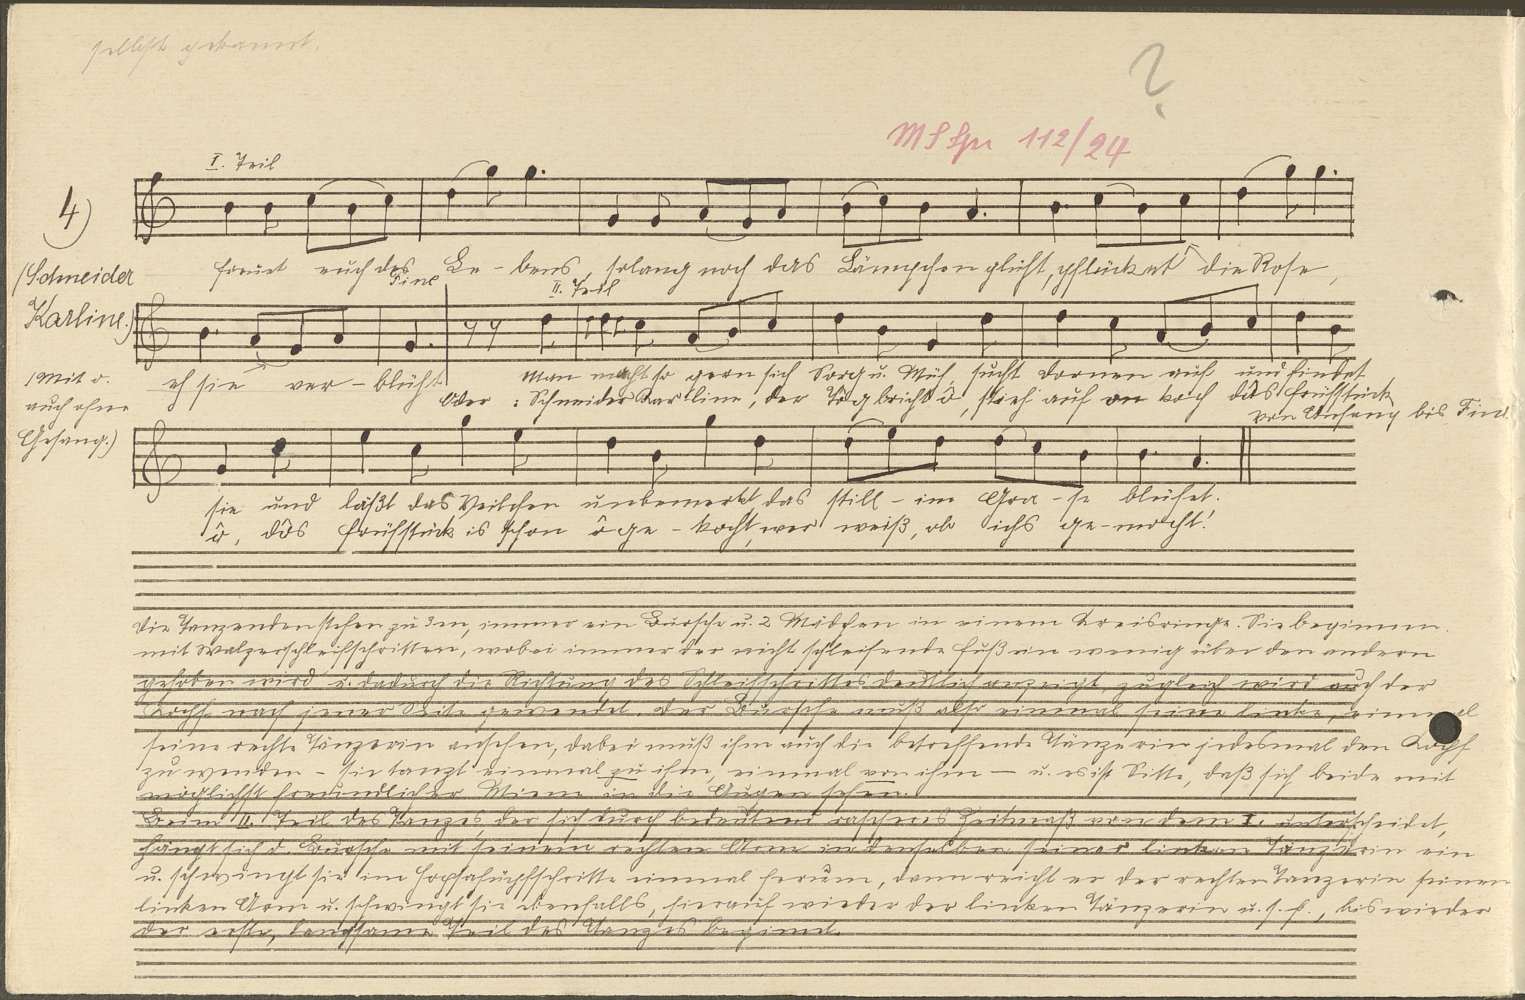 selbst gekannt.
?
MS Spr 112/24
I. Teil
4)
freuet euch des Le - bens, solang noch das Lämpchen glüht, pflücket die Rose,
Fine
II. Teil
(Schneider
Karline.)
(Mit o.
auch ohne
Gesang.)
eh sie ver - blüht
Man macht so gern sich Sorg u. Müh, sucht Dornen auf und findet
oder: Schneider Karline, der Tog bricht ô, steh auf on koch dås Frühstück
von Anfang bis Fine.
sie und läßt das Veilchen unbemerkt, das still - im Gra - se blühet.
ô, dås Frühstück is schon ôge - kocht, wer weiß, ob ichs ge - mocht!
Die Tanzenden stehen zu 3en, immer ein Bursche u. 2 Mädchen in einem Kreisringe. Sie beginnen
mit Walzerschleifschritten, wobei immer der nicht schleifende Fuß ein wenig über den andern
gehoben wird u. dadurch die Richtung des Schleifschrittes deutlich anzeigt, zugleich wird auch der
Kopf nach jener Seite gewendet. Der Bursche muß also einmal seine linke, einmal
seine rechte Tänzerin ansehen, dabei muß ihm auch die betreffende Tänzerin jedesmal den Kopf
zu wenden - sie tanzt einmal zu ihm, einmal von ihm - u. es ist Sitte, daß sich beide mit
möglichst freundlicher Miene in die Augen sehen.
Beim II. Teil des Tanzes, der sich durch bedeutend rascheres Zeitmaß von dem I. unterscheidet,
hängt sich d. Bursche mit seinem rechten Arm in denselben seiner linken Tänzerin ein
u. schwingt sie im Hopsahupfschritte einmal herum, dann reicht er der rechten Tänzerin seinen
linken Arm u. schwingt sie ebenfalls, hierauf wieder der linken Tänzerin u.s.f., bis wieder
der erste, langsame Teil des Tanzes beginnt.